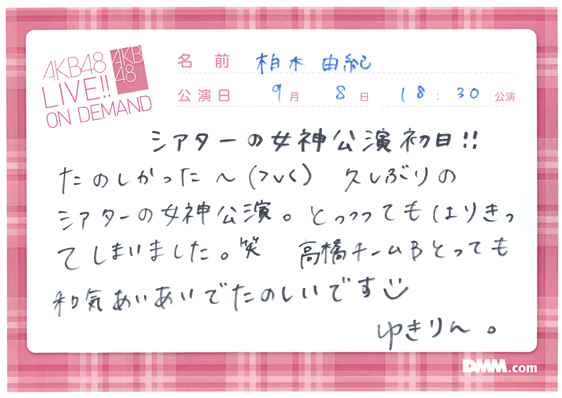 AKB48
LIVE!!
ON DEMAND
AKB
48
名前 柏木由紀
公演日 9月 8日 18:30 公演
シアターの女神公演初日!!
たのしかった〜(>v<) 久しぶりの
シアターの女神公演。とっっってもはりきっ
てしまいました。笑 高橋チームBとっても
和気あいあいでたのしいです
ゆきりん。
DMM.com